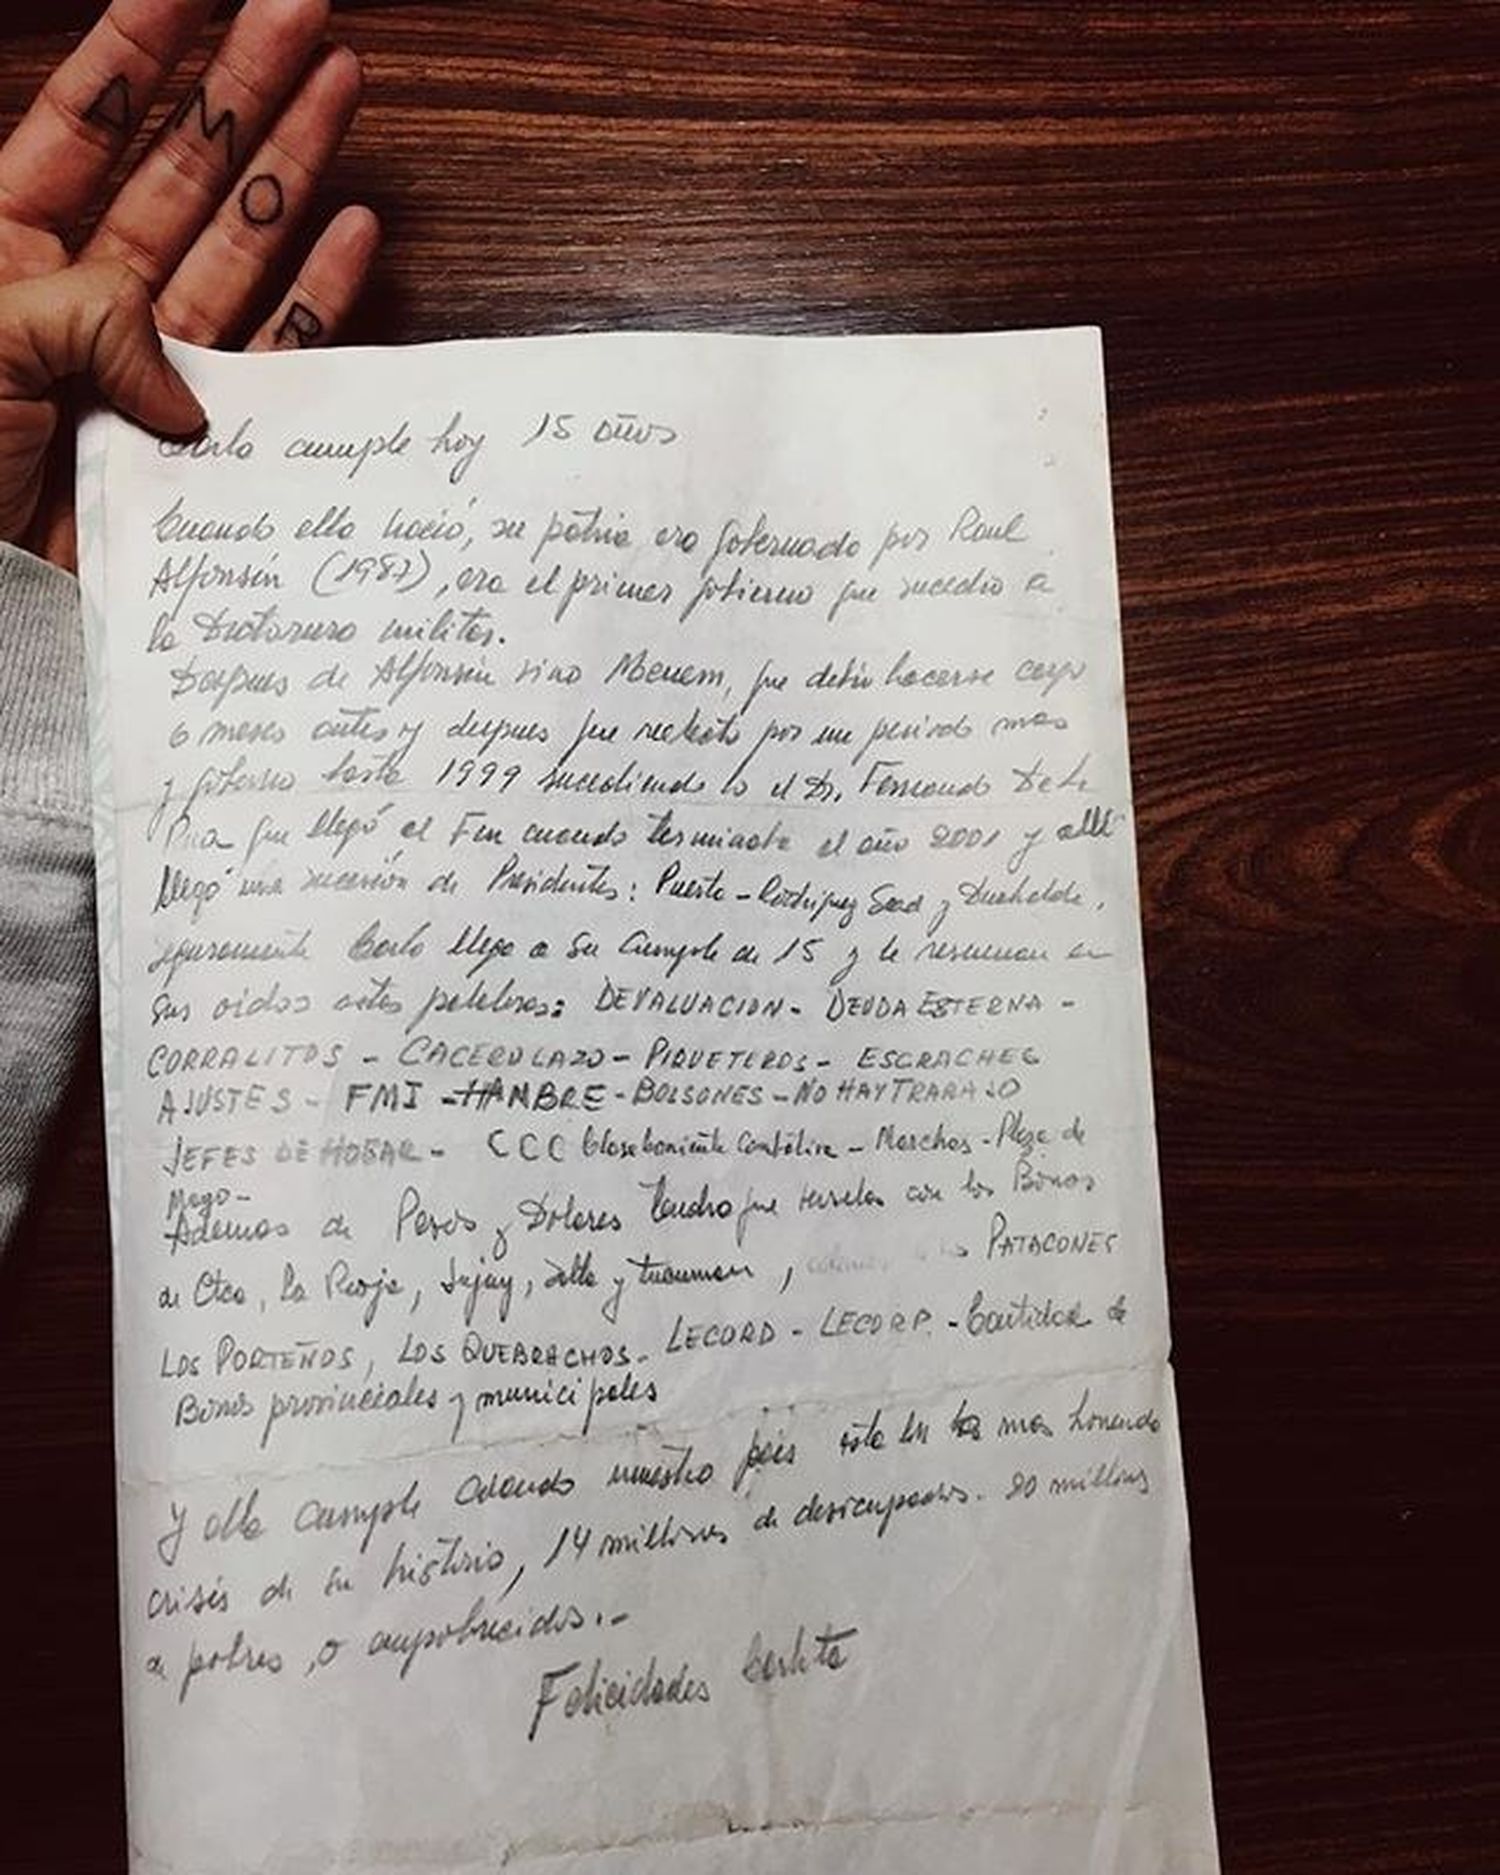 A M O R
Carla cumple hoy 15 años
Cuando ella nació, su patria era gobernada por Raul
Alfonsín (1987), era el primer gobierno que sucedio a
la Dictadura militar.
Despues de Alfonsin vino Menem, que debió hacerse cargo
6 meses antes y despues fue reelecto por un periodo mas
y goberno hasta 1999 sucediendo lo el Dr. Fernando De La
Rua que llegó al Fin cuando terminaba el año 2001 y allí
llegó una sucesión de Presidentes: Puerta - Rodriguez Saad y Duhalde.
seguramente Carla llega a su cumple de 15 y le resuenan en
sus oidos estas palabras: DEVALUACION - DEUDA ESTERNA -
CORRALITOS - CACEROLAZO - PIQUETEROS - ESCRACHES
AJUSTES - FMI - HAMBRE - BOLSONES - NO HAY TRABAJO
JEFES DE HOGAR - CCC Clase Corriente Combativa - Marchas - Plaza de
Mayo -
Ademas de Pesos y Dolares tendra que con los Bonos
de Ctca, La Rioja, Jujuy, Salta y Tucuman, PATACONES
LOS PORTEÑOS, LOS QUEBRACHOS - LECORD - LECORP. - Cantidad de
Bonos provinciales y municipales
Y ella cumple cuando nuestro pais esta en la mas honda
crisis de su historia, 14 millones de desocupados - 20 millones
de pobres, o empobrecidos. -
Felicidades Carlita